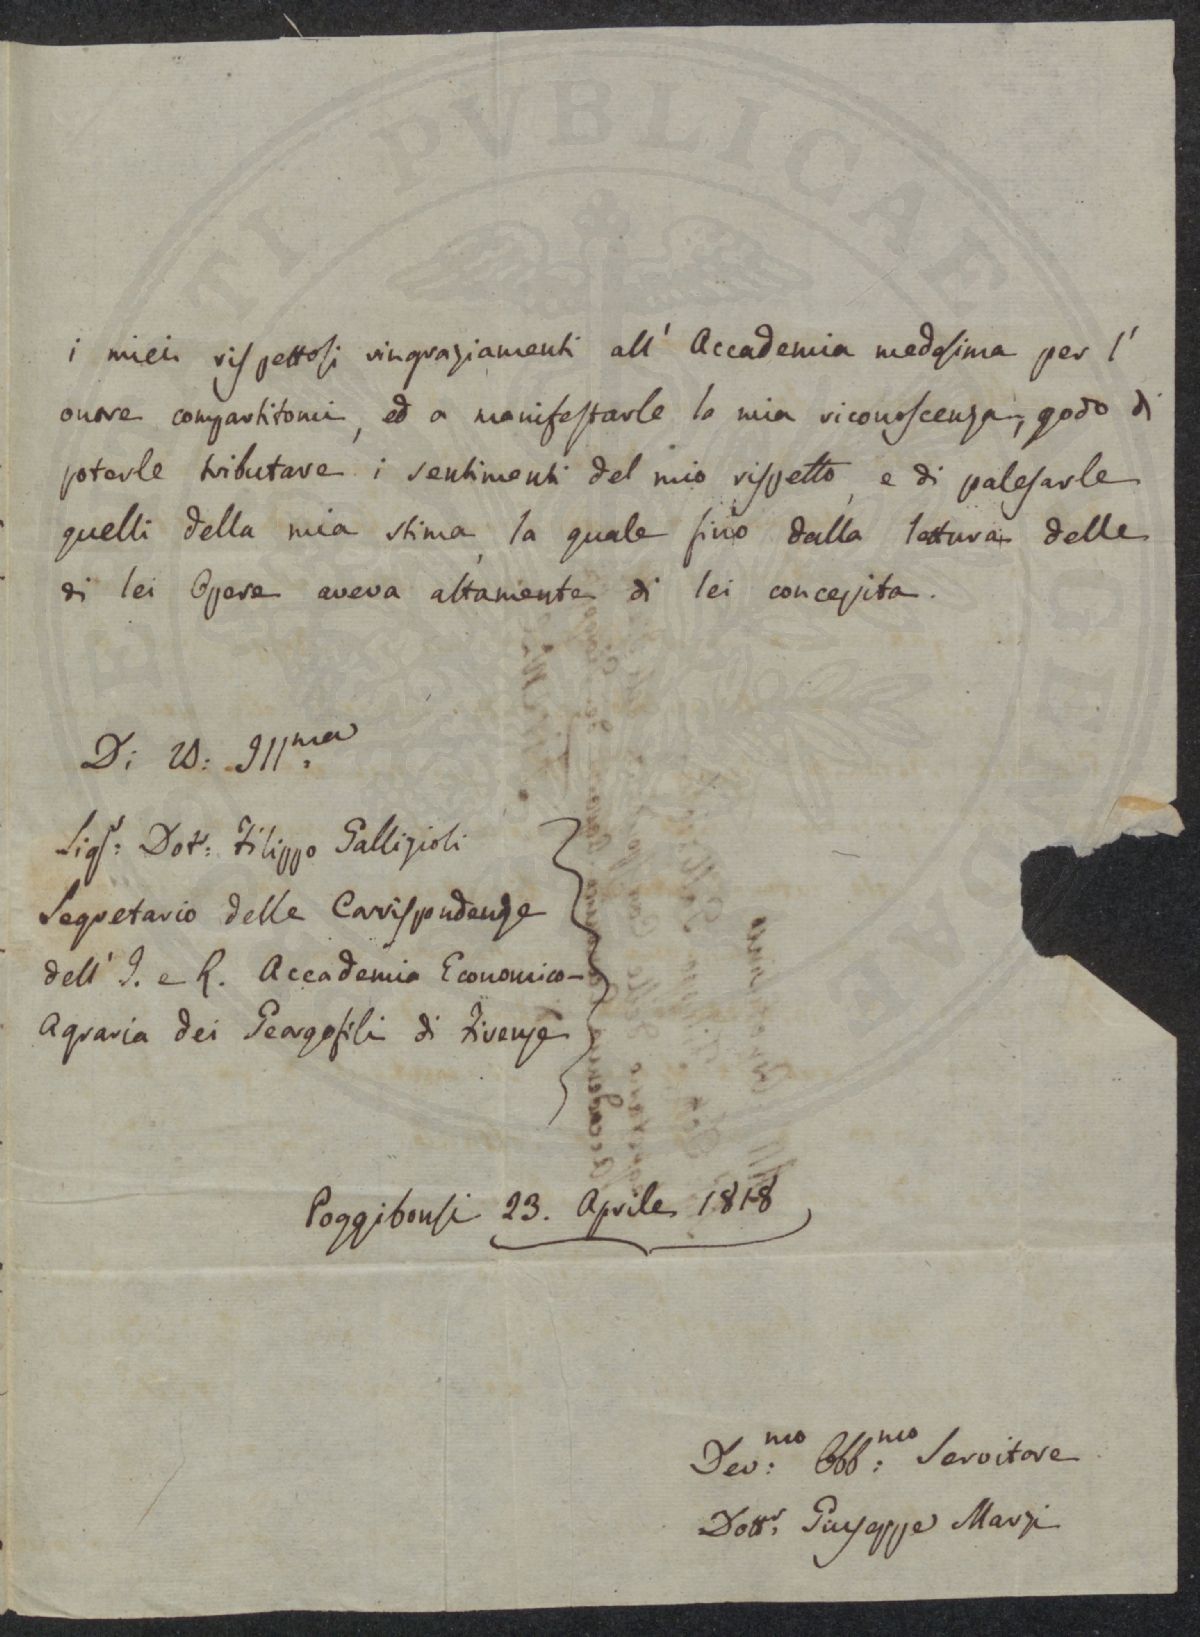 i miei rispettosi ringraziamenti all' Accademia medesima per l'
onore compartitomi, ed a manifestarle la mia riconoscenza, godo di
poterle tributare i sentimenti del mio rispetto, e di palesarle
quelli della mia stima, la quale fino dalla lettura delle
di lei Opere aveva altamente di lei concepita.
Di V: Ill:ma
Sigr: Dotr: Filippo Gallizioli
Segretario delle Corrispondenze
dell' I. e R. Accademia Economico-
Agraria dei Georgofili di Firenze
Poggibonsi 23. Aprile 1818
Dev:mo Obb:mo Servitore
Dottr: Giuseppe Marzi